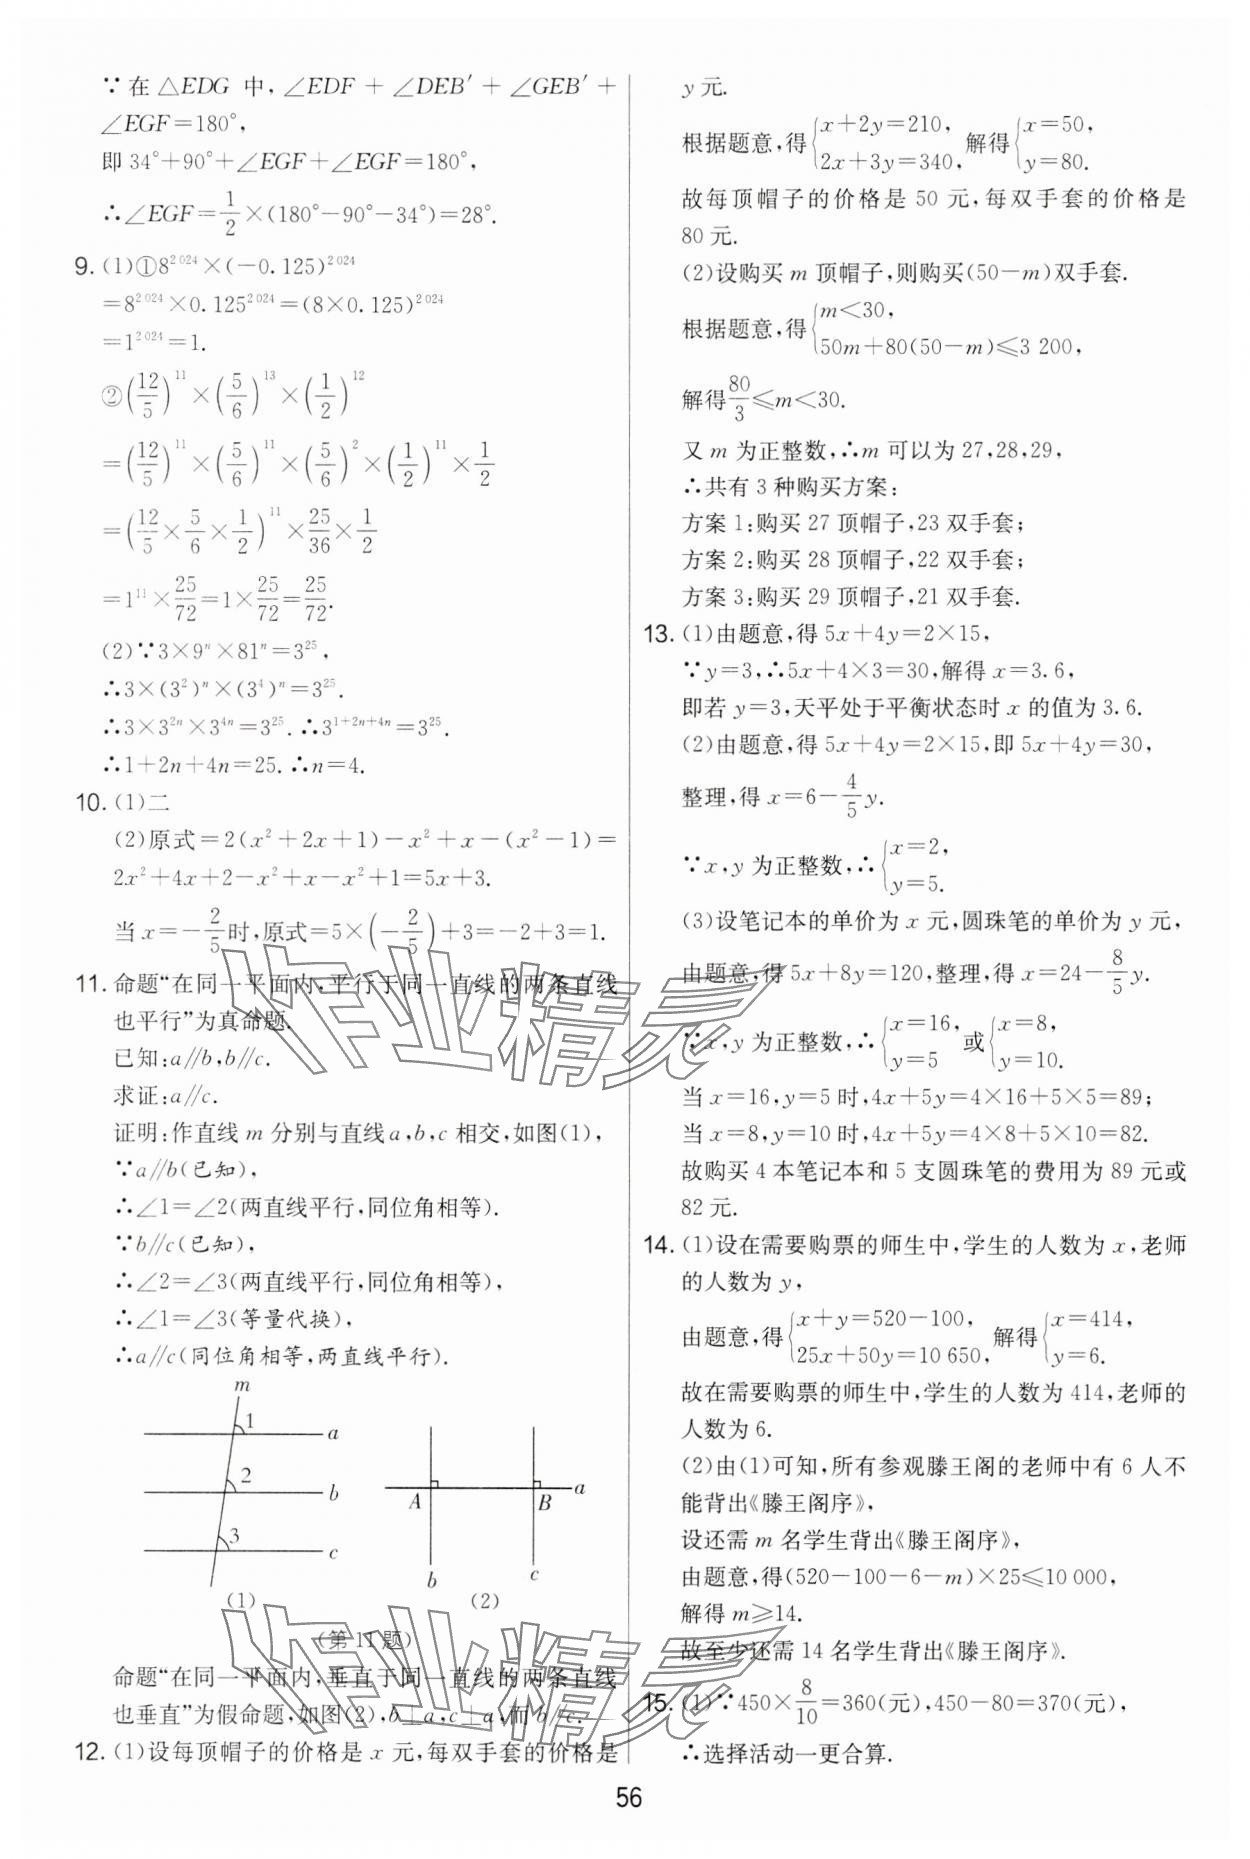 ∵在△EDG中,∠EDF+∠DEB′+∠GEB′+
∠EGF=180°,
即 34°+90°+∠EGF+∠EGF=180°,
∴∠EGF=1/2×(180°-90°-34°)=28°.
9. (1)①8^2 024×(-0.125)^2 024
=8^2 024×0.125^2 024=(8×0.125)^2 024
=1^2 024=1.
②(12/5)^11×(5/6)^13×(1/2)^12
=(12/5)^11×(5/6)^11×(5/6)^2×(1/2)^11×1/2
=(12/5×5/6×1/2)^11×25/36×1/2
=1^11×25/72=1×25/72=25/72.
(2)∵3×9^n×81^n=3^25,
∴3×(3^2)^n×(3^4)^n=3^25.
∴3×3^2n×3^4n=3^25.∴3^1+2n+4n=3^25.
∴1+2n+4n=25.∴n=4.
10. (1)二
(2)原式=2(x²+2x+1)-x²+x-(x²-1)=
2x²+4x+2-x²+x-x²+1=5x+3.
当 x=-2/5时,原式=5×(-2/5)+3=-2+3=1.
11. 命题“在同一平面内,平行于同一直线的两条直线
也平行”为真命题.
已知:a∥b,b∥c.
求证:a∥c.
证明:作直线 m 分别与直线a,b,c 相交,如图(1),
∵a∥b(已知),
∴∠1=∠2(两直线平行,同位角相等).
∵b∥c(已知),
∴∠2=∠3(两直线平行,同位角相等),
∴∠1=∠3(等量代换),
∴a∥c(同位角相等,两直线平行).
m
1
a
2
b
3
c
(1)
A
B
a
b
c
(2)
(第11题)
命题“在同一平面内,垂直于同一直线的两条直线
也垂直”为假命题,如图(2),b⊥a,c⊥a,而 b∥c.
12. (1)设每顶帽子的价格是 x 元,每双手套的价格是
y 元.
根据题意,得{x+2y=210, 2x+3y=340, 解得{x=50, y=80.
故每顶帽子的价格是 50 元,每双手套的价格是
80 元.
(2)设购买 m 顶帽子,则购买(50-m)双手套.
根据题意,得{m<30, 50m+80(50-m)≤3 200,
解得80/3≤m<30.
又 m 为正整数,∴m 可以为 27,28,29,
∴共有 3 种购买方案:
方案 1:购买 27 顶帽子,23 双手套;
方案 2:购买 28 顶帽子,22 双手套;
方案 3:购买 29 顶帽子,21 双手套.
13. (1)由题意,得 5x+4y=2×15,
∵y=3,∴5x+4×3=30,解得 x=3.6,
即若 y=3,天平处于平衡状态时 x 的值为 3.6.
(2)由题意,得 5x+4y=2×15,即 5x+4y=30,
整理,得 x=6-4/5y.
∵x,y 为正整数,∴{x=2, y=5.
(3)设笔记本的单价为 x 元,圆珠笔的单价为 y 元,
由题意,得5x+8y=120,整理,得 x=24-8/5y.
∵x,y 为正整数,∴{x=16, y=5 或{x=8, y=10.
当 x=16,y=5 时,4x+5y=4×16+5×5=89;
当 x=8,y=10 时,4x+5y=4×8+5×10=82.
故购买 4 本笔记本和 5 支圆珠笔的费用为 89 元或
82 元.
14. (1)设在需要购票的师生中,学生的人数为 x,老师
的人数为 y,
由题意,得{x+y=520-100, 25x+50y=10 650, 解得{x=414, y=6.
故在需要购票的师生中,学生的人数为 414,老师的
人数为 6.
(2)由(1)可知,所有参观滕王阁的老师中有 6 人不
能背出《滕王阁序》,
设还需 m 名学生背出《滕王阁序》,
由题意,得(520-100-6-m)×25≤10 000,
解得 m≥14.
故至少还需 14 名学生背出《滕王阁序》.
15. (1)∵450×8/10=360(元),450-80=370(元),
∴选择活动一更合算.
56
作业精灵
作业精灵